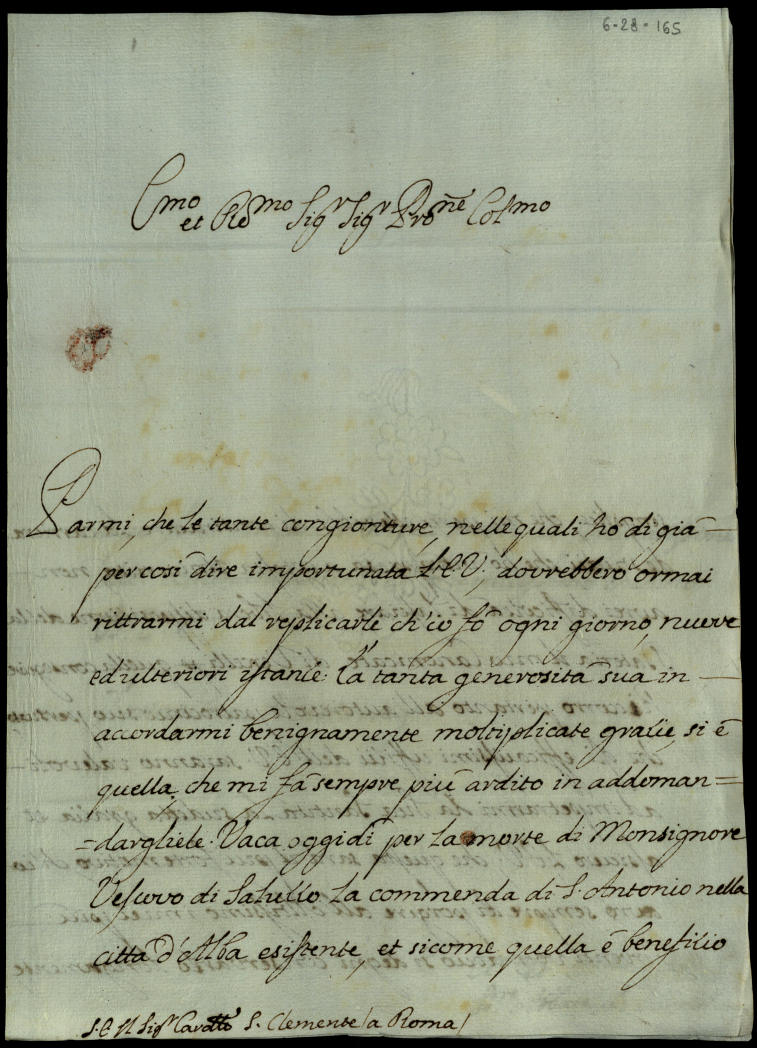 6-28-165
Emo et Rëmo Sigr Sigr Prone Colmo
Parmi, che le tante congionture, nelle quali hò di già
per così dire importunata L'E.V., dovrebbero ormai
rittrarmi dal replicarle ch'io fò ogni giorno, nuove
ed ulteriori istanze: La tanta generosità sua in
accordarmi benignamente moltiplicate grazie, si è
quella, che mi fà sempre più ardito in addoman=
=dargliele. Vaca oggidì per la morte di Monsignore
Vescovo di Saluzzo la commenda di S. Antonio nella
città d'Alba esistente, et sicome quella è benefizio
S. E. Il Sigr S. Clemente (a Roma)